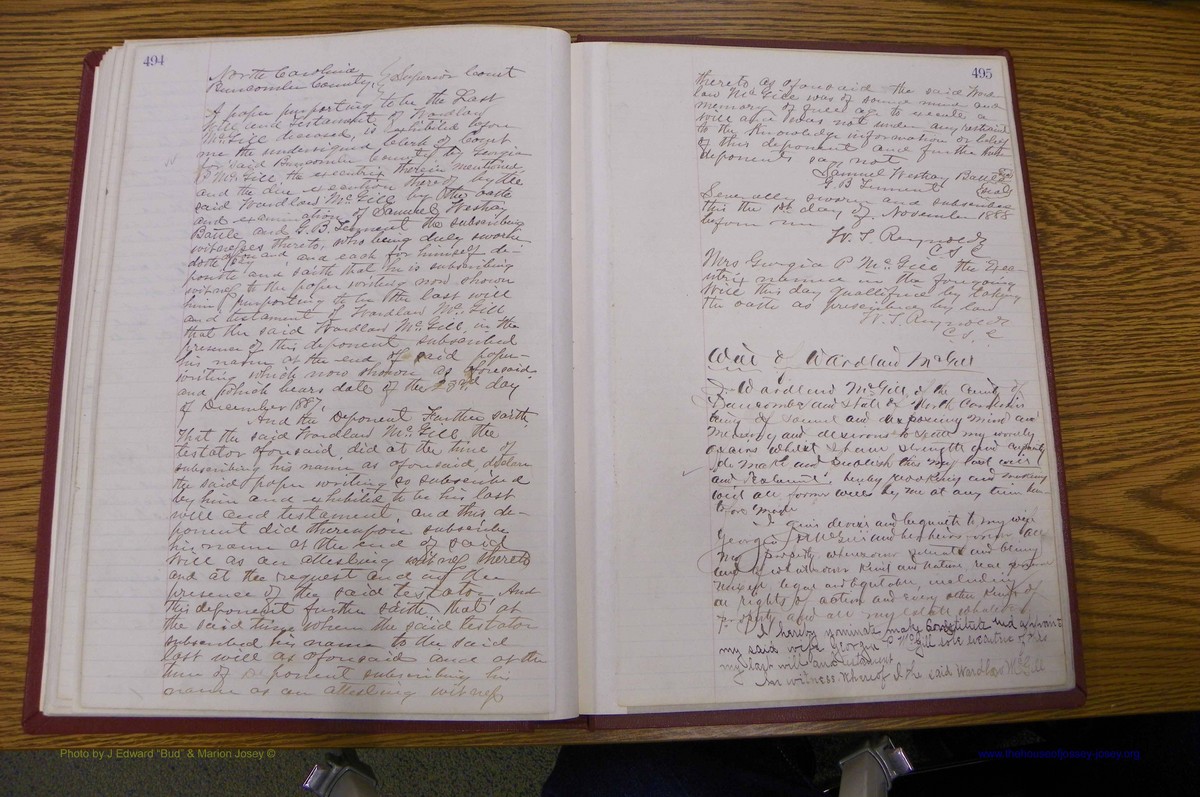 494
North Carolina } Superior Court
Buncombe County }
A paper purporting to be the Last
Will and Testament of Wardlaw
McGill deceased, is exhibited before
me the undersigned Clerk of Court
for said Buncombe County by Georgia
P McGill the executrix therein mentioned
and the due execution thereof by the
said Wardlaw McGill by the oath
and examination of Samuel Westray
Battle and G. B. Tennent the subscribing
witnesses thereto, who being duly sworn
doth depose and say and each for himself de-
poseth and saith that he is subscribing
witness to the paper writing now shown
him purporting to be the last will
and testament of Wardlaw McGill
that the said Wardlaw McGill, in the
presence of this deponent subscribed
his name at the end of said paper-
writing which now shown as aforesaid
and which bears date of the 23rd day
of December 1887.
And the Deponent Further saith,
That the said Wardlaw McGill the
testator aforesaid, did at the time of
subscribing his name as aforesaid declare
the said paper writing so subscribed
by him and exhibited to be his last
will and testament, and this de-
ponent did thereupon subscribe
his name at the end of said
Will as an attesting witness thereto
and at the request and in the
presence of the said testator And
this deponent further saith that at
the said time when the said testator
subscribed his name to the said
last will as aforesaid and at the
time of deponent subscribing his
name as an attesting witness
495
thereto as aforesaid the said Ward-
law McGill was of sound mind and
memory of full age to execute a
will and was not under any restraint
to the knowledge information or belief
of this deponent and further these
deponents say not
Samuel Westray Battle
G B Tennent (seal)
Severally sworn and subscribed
this the 1st day of November 1888
before me
W. T. Reynolds
C. S. C
Mrs Georgia P McGill the Exe-
cutrix named in the foregoing
Will this day qualified by taking
the oath as prescribed by law
W. T. Reynolds
C. S. C
Will of Wardlaw McGill
I Wardlaw McGill of the County of
Buncombe and State of North Carolina
being of sound and disposing mind and
memory and desirous to settle my worldly
affairs whilst I have strength and capacity
do make and publish this my last will
and testament, hereby revoking and making
void all former wills by me at any time here-
tofore made
I give devise and bequeath to my wife
Georgia P McGill and her heirs all
my property wheresoever situate and being
and of whatsoever kind and nature real personal
mixed legal and equitable, including
all rights of action and every other kind of
property and all my estate whatever
I hereby nominate make constitute and appoint
my said wife Georgia P McGill sole executrix of this
my last will and testament
In witness whereof I the said Wardlaw McGill
Photo by J Edward "Bud" & Marion Josey ©
www.thehouseofjossey-josey.org